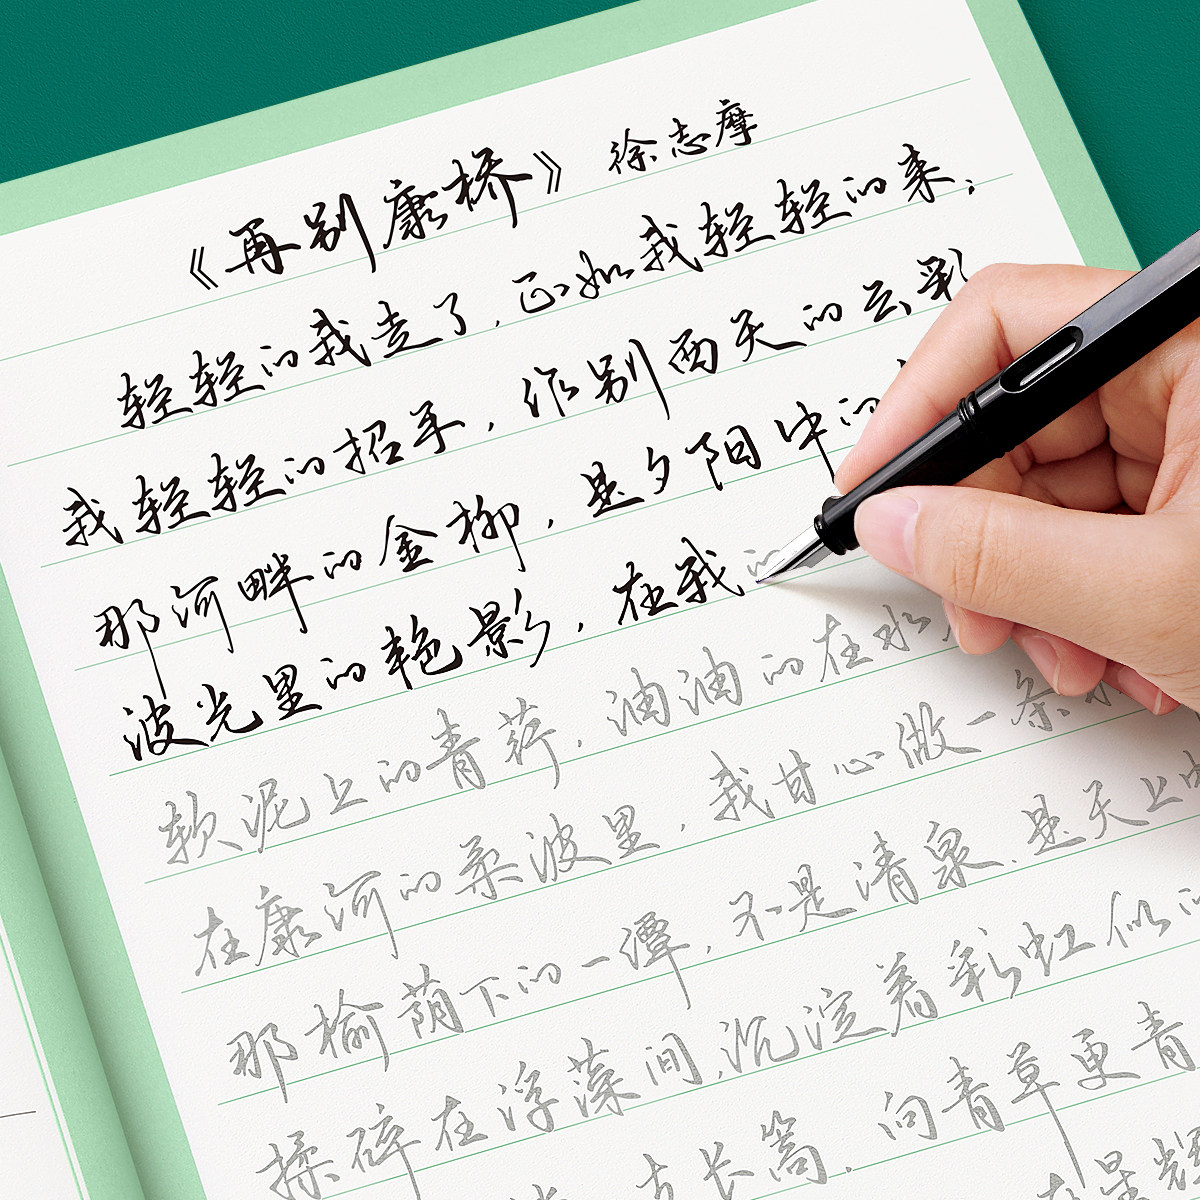 《再别康桥》 徐志摩
轻轻的我走了,正如我轻轻的来;
我轻轻的招手,作别西天的云彩
那河畔的金柳,是夕阳中的
波光里的艳影,在我的
软泥上的青荇,油油的在水
在康河的柔波里,我甘心做一条
那榆荫下的一潭,不是清泉,是天上
揉碎在浮藻间,沉淀着彩虹似的
支长篙,向青草更青
星辉